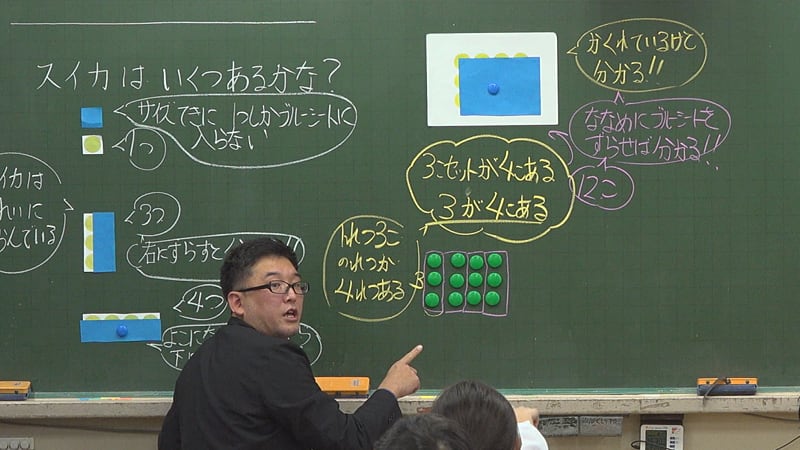 スイカは いくつあるかな?
サイズてきに 1つしかブルーシートに
入らない
1つ
イカは
れいに
んでいる
3つ
右にずらすと
4つ
かくれているけど
分かる!!
ななめにブルーシートを
ずらせば分かる!!
12こ
3こセットが4こある
3が4こある
1れつ3こ
のれつが
4れつある
3